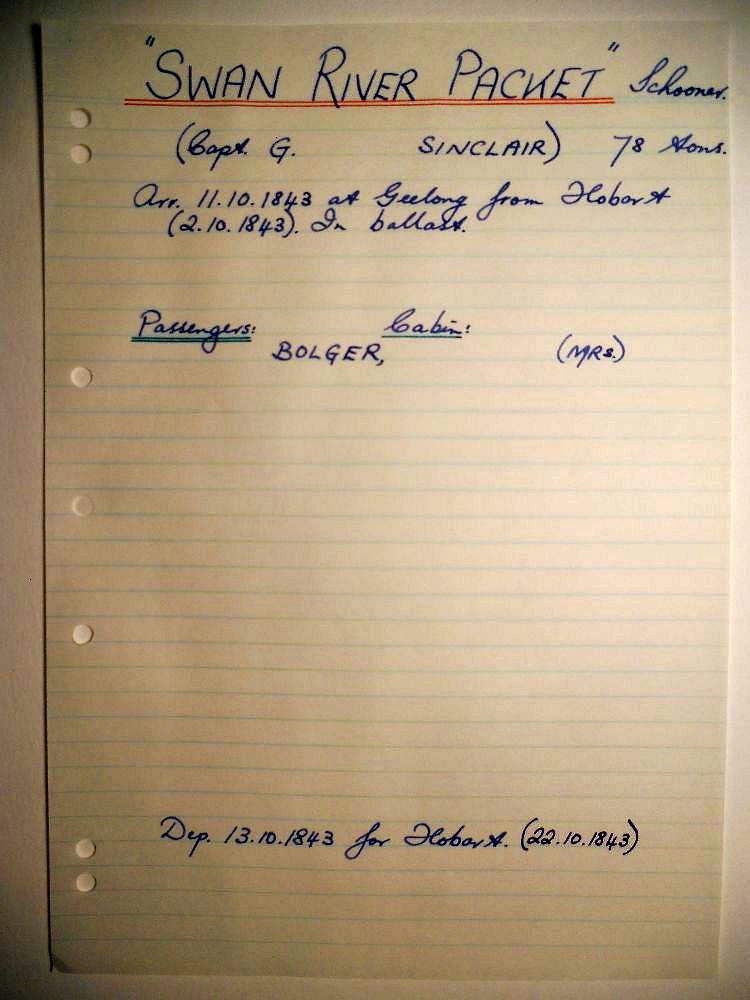 "SWAN RIVER PACKET" Schooner.
(Capt. G. SINCLAIR) 78 tons.
Arr. 11.10.1843 at Geelong from Hobart
(2.10.1843). In ballast.
Passengers: Cabin:
BOLGER, (MRS.)
Dep. 13.10.1843 for Hobart. (22.10.1843)